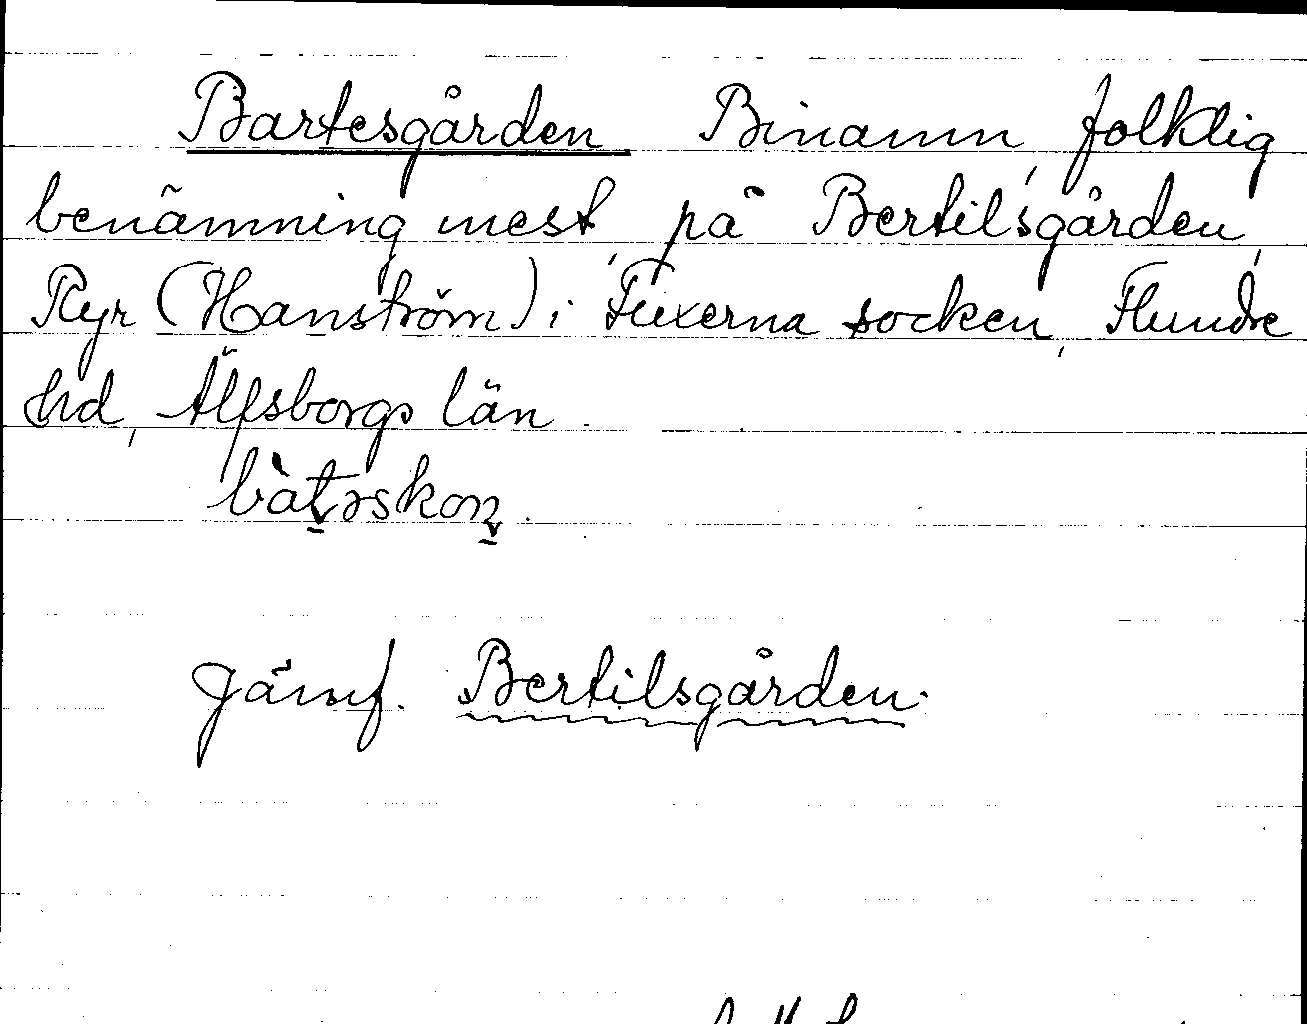 Bartesgården Binamn, folklig
benämning mest, på Bertilsgården,
Ryr (Hanström) i Fuxerna socken, Flundre
hd, Älfsborgs län.
Jämf. Bertilsgården.